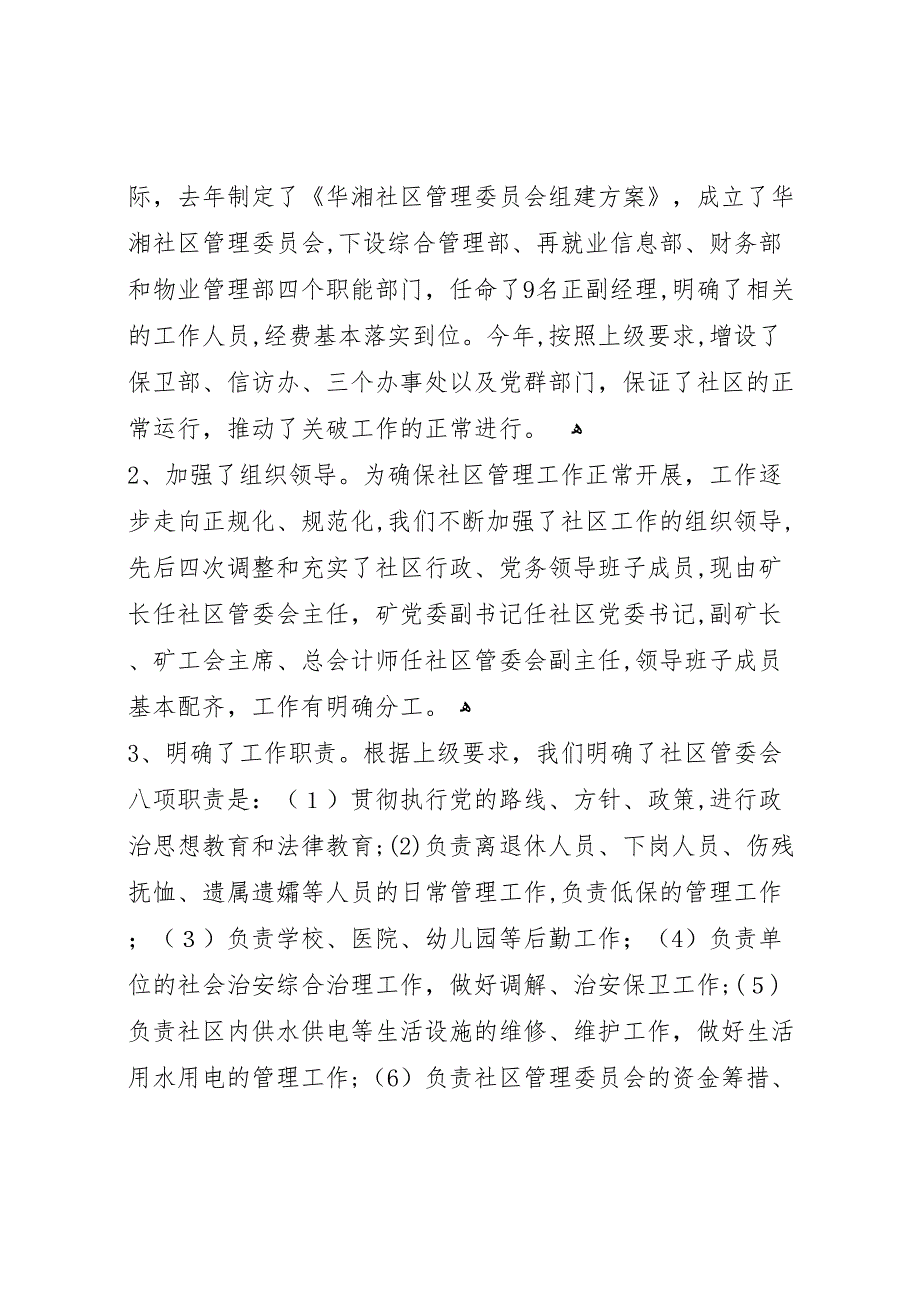 际，去年制定了《华湘社区管理委员会组建方案》，成立了华
湘社区管理委员会,下设综合管理部、再就业信息部、财务部
和物业管理部四个职能部门，任命了9名正副经理,明确了相关
的工作人员,经费基本落实到位。今年,按照上级要求,增设了
保卫部、信访办、三个办事处以及党群部门，保证了社区的正
常运行，推动了关破工作的正常进行。 ﻫ
2、加强了组织领导。为确保社区管理工作正常开展，工作逐
步走向正规化、规范化,我们不断加强了社区工作的组织领导,
先后四次调整和充实了社区行政、党务领导班子成员,现由矿
长任社区管委会主任，矿党委副书记任社区党委书记,副矿长
、矿工会主席、总会计师任社区管委会副主任,领导班子成员
基本配齐，工作有明确分工。 ﻫ
3、明确了工作职责。根据上级要求，我们明确了社区管委会
八项职责是：（１）贯彻执行党的路线、方针、政策,进行政
治思想教育和法律教育;(2)负责离退休人员、下岗人员、伤残
抚恤、遗属遗孀等人员的日常管理工作,负责低保的管理工作
；（３）负责学校、医院、幼儿园等后勤工作；（4）负责单
位的社会治安综合治理工作，做好调解、治安保卫工作;(５)
负责社区内供水供电等生活设施的维修、维护工作，做好生活
用水用电的管理工作;（6）负责社区管理委员会的资金筹措、